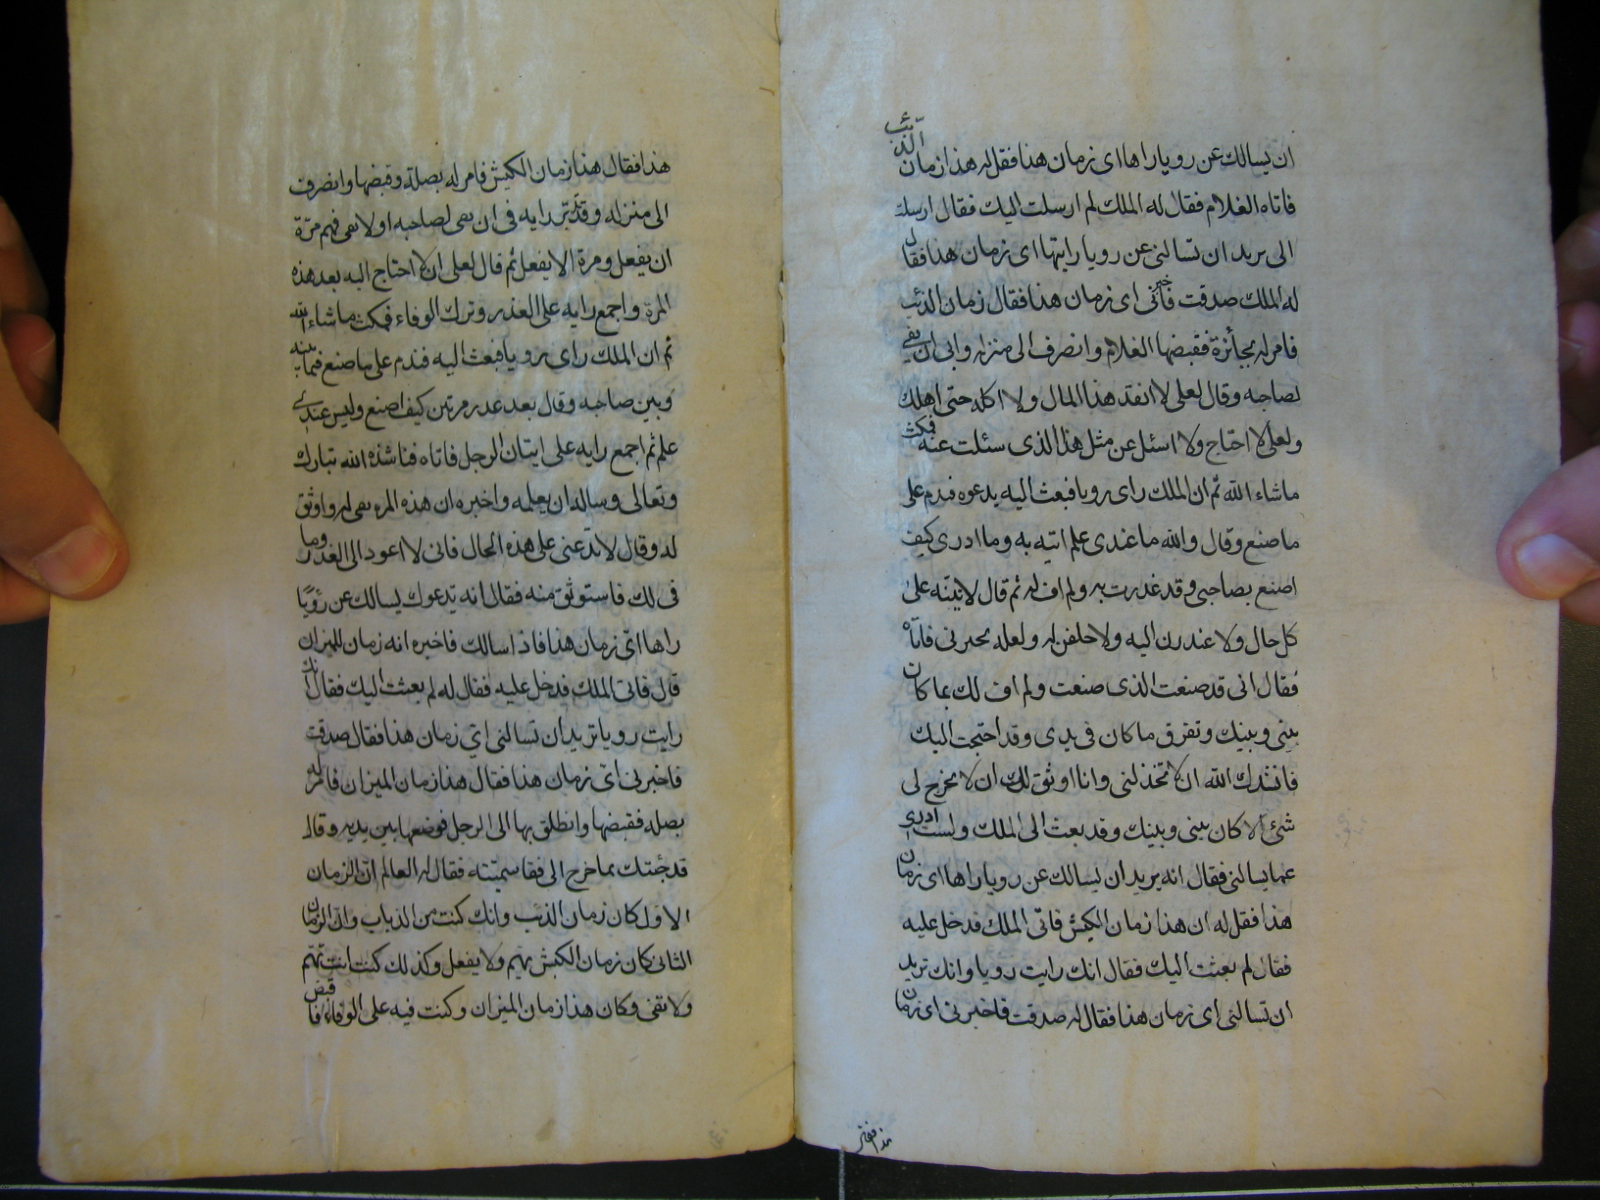 ان يسالك عن رويا راها اى زمان هذا فقل له هذا زمان الذّئب
فاتاه الغلام فقال له الملك لم ارسلت اليك فقال ارسلت
الى يريد ان تسالنى عن رويا رايتها اى زمان هذا فقال
له الملك صدقت فاخبرنى اى زمان هذا فقال زمان الذئب
فامر له بجائزة فقبضها الغلام وانصرف الى منزله وابى ان يفى
لصاحبه وقال لعلى لا انفد هذا المال ولا اكله حتى اهلك
ولعلى لا احتاج ولا اسئل عن مثل هذا الذى سئلت عنه فمكث
ماشاء الله ثم ان الملك راى رويا فبعث اليه يدعوه فندم على
ما صنع وقال والله ما عندى علم اتيه به وما ادرى كيف
اصنع بصاحبى وقد غدرت به ولم اف له ثم قال لاتينّه على
كل حال ولاعتذرن اليه ولاحلفن له ولعله يخبرنى فاتاه
فقال انى قد صنعت الذى صنعت ولم اف لك بما كان
بينى وبينك وتفرق ما كان فى يدى وقد احتجت اليك
فانشدك الله ان لا تخذلنى وانا اوثق لك ان لا يخرج لى
شئ الا كان بينى وبينك وقد بعث الى الملك ولست ادرى
عما يسالنى فقال انه يريد ان يسالك عن رويا راها اى زمان
هذا فقل له ان هذا زمان الكبش فاتى الملك فدخل عليه
فقال لم بعثت اليك فقال انك رايت رويا وانك تريد
ان تسالنى اى زمان هذا فقال له صدقت فاخبرنى اى زمان
هذا فقال
هذا فقال هذا زمان الكبش فامر له بصلة وقبضها وانصرف
الى منزله وقد تدبّر رايه فى ان يفى لصاحبه او لا يفى فهم مرّة
ان يفعل ومرة الا يفعل ثم قال لعلى ان لا احتاج اليه بعد هذه
المرة واجمع رايه على الغدر وترك الوفاء فمكث ما شاء الله
ثم ان الملك راى رويا فبعث اليه فندم على ما صنع فيما بينه
وبين صاحبه وقال بعد غدر مرتين كيف اصنع وليس عندى
علم ثم اجمع رايه على ايتان الرجل فاتاه فناشده الله تبارك
وتعالى وساله ان يعلمه واخبره ان هذه المرة يفى له واوثق
له وقال لا تدعنى على هذه الحال فانى لا اعود الى الغدر وما
فى لك فاستوثق منه فقال انه يدعوك ليسالك عن رؤيًا
راها اىّ زمان هذا فاذا سالك فاخبره انه زمان الميزان
قال فاتى الملك فدخل عليه فقال له لم بعثت اليك فقال انك
رايت رويا تريد ان تسالنى اى زمان هذا فقال صدقت
فاخبرنى اىّ زمان هذا فقال هذا زمان الميزان فامر له
بصلة فقبضها وانطلق بها الى الرجل فوضعها بين يديه وقال
قد جئتك بما خرج الى فقاسمنيه فقال له العالم انّ الزمان
الاوّل كان زمان الذئب وانك كنت من الذياب وان الزمان
الثانى كان زمان الكبش يهم ولا يفعل وكذلك كنت انت تهمّ
ولا تفى وكان هذا زمان الميزان وكنت فيه على الوفاء فاقبض